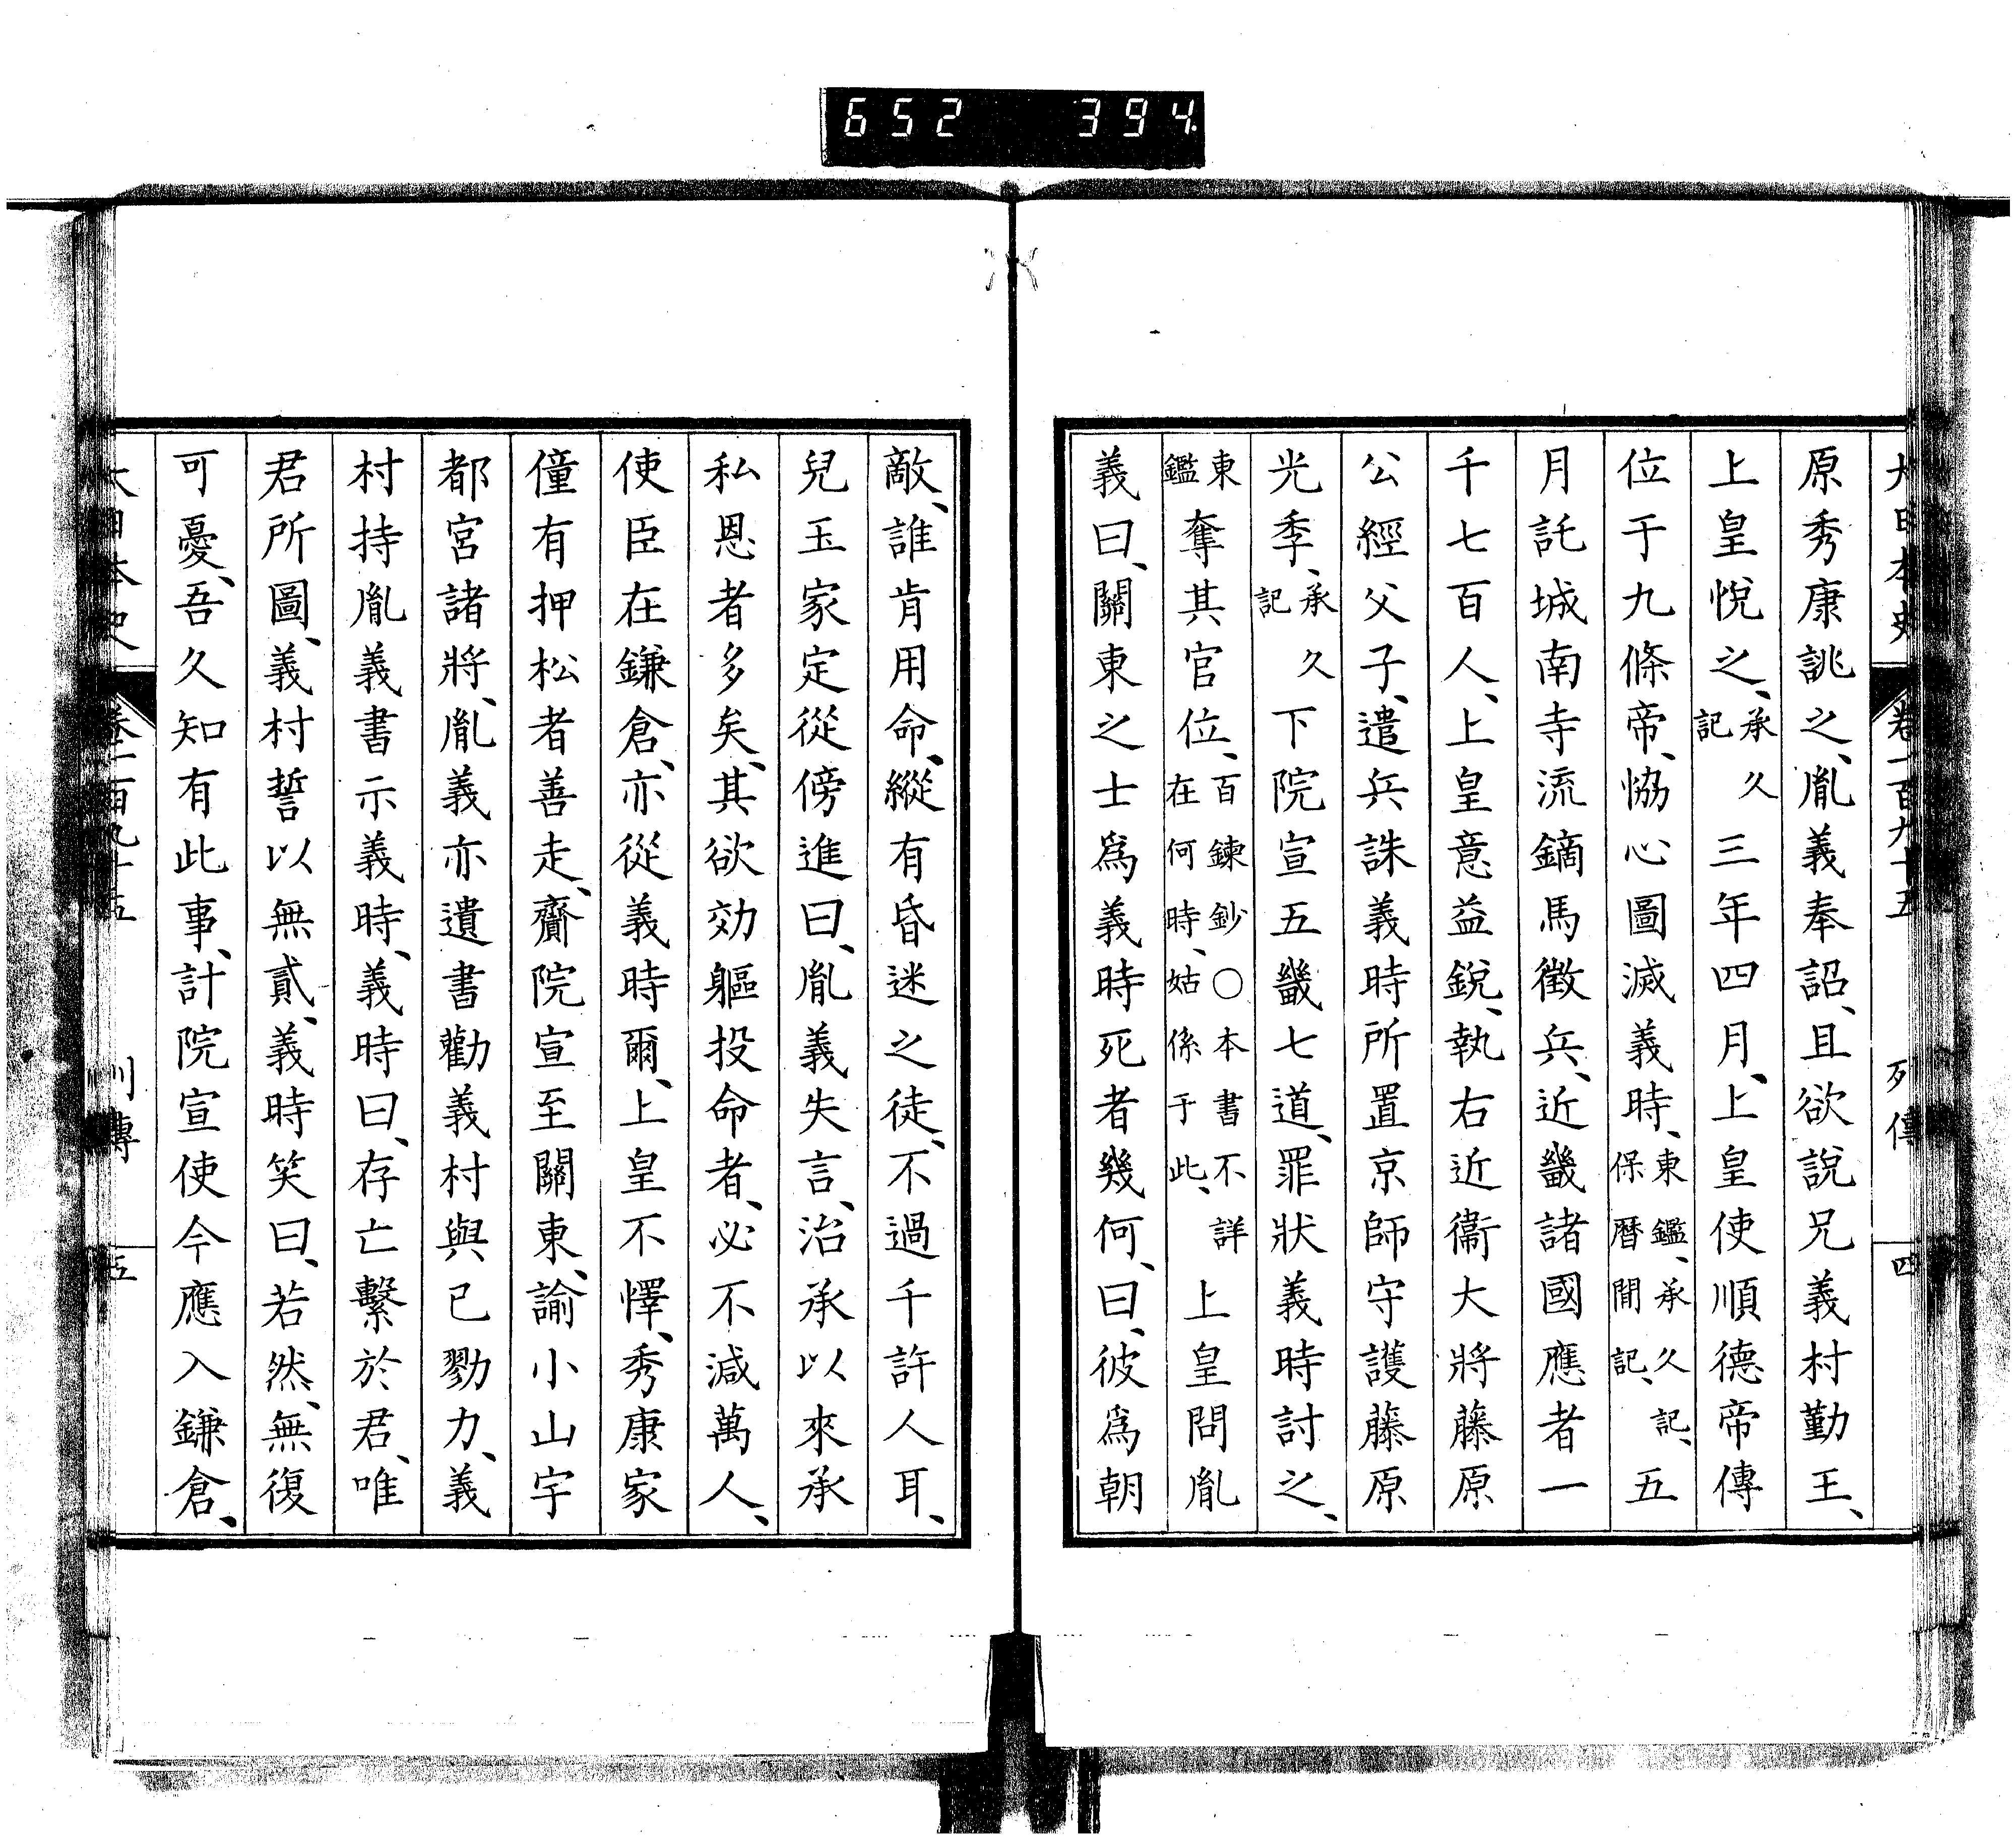 652 394.
大日本史 卷一百九十五 列傳 四
原秀康誂之、胤義奉詔、且欲說兄義村勤王、
上皇悅之、承久記三年四月、上皇使順德帝傳
位于九條帝、恊心圖滅義時、東鑑、承久記、保曆閒記、五
月託城南寺流鏑馬徵兵、近畿諸國應者一
千七百人、上皇意益銳、執右近衞大將藤原
公經父子、遣兵誅義時所置京師守護藤原
光季、承久記下院宣五畿七道、罪狀義時討之、
東鑑奪其官位、百鍊鈔○本書不詳在何時、姑係于此、上皇問胤
義曰、關東之士爲義時死者幾何、曰、彼爲朝
敵、誰肯用命、縱有昏迷之徒、不過千許人耳、
兒玉家定從傍進曰、胤義失言、治承以來承
私恩者多矣、其欲効軀投命者、必不減萬人、
使臣在鎌倉、亦從義時爾、上皇不懌、秀康家
僮有押松者善走、齎院宣至關東、諭小山宇
都宮諸將、胤義亦遺書勸義村與已勠力、義
村持胤義書示義時、義時曰、存亡繫於君、唯
君所圖、義村誓以無貳、義時笑曰、若然、無復
可憂、吾久知有此事、計院宣使今應入鎌倉、
大日本史 卷一百九十五 列傳 五